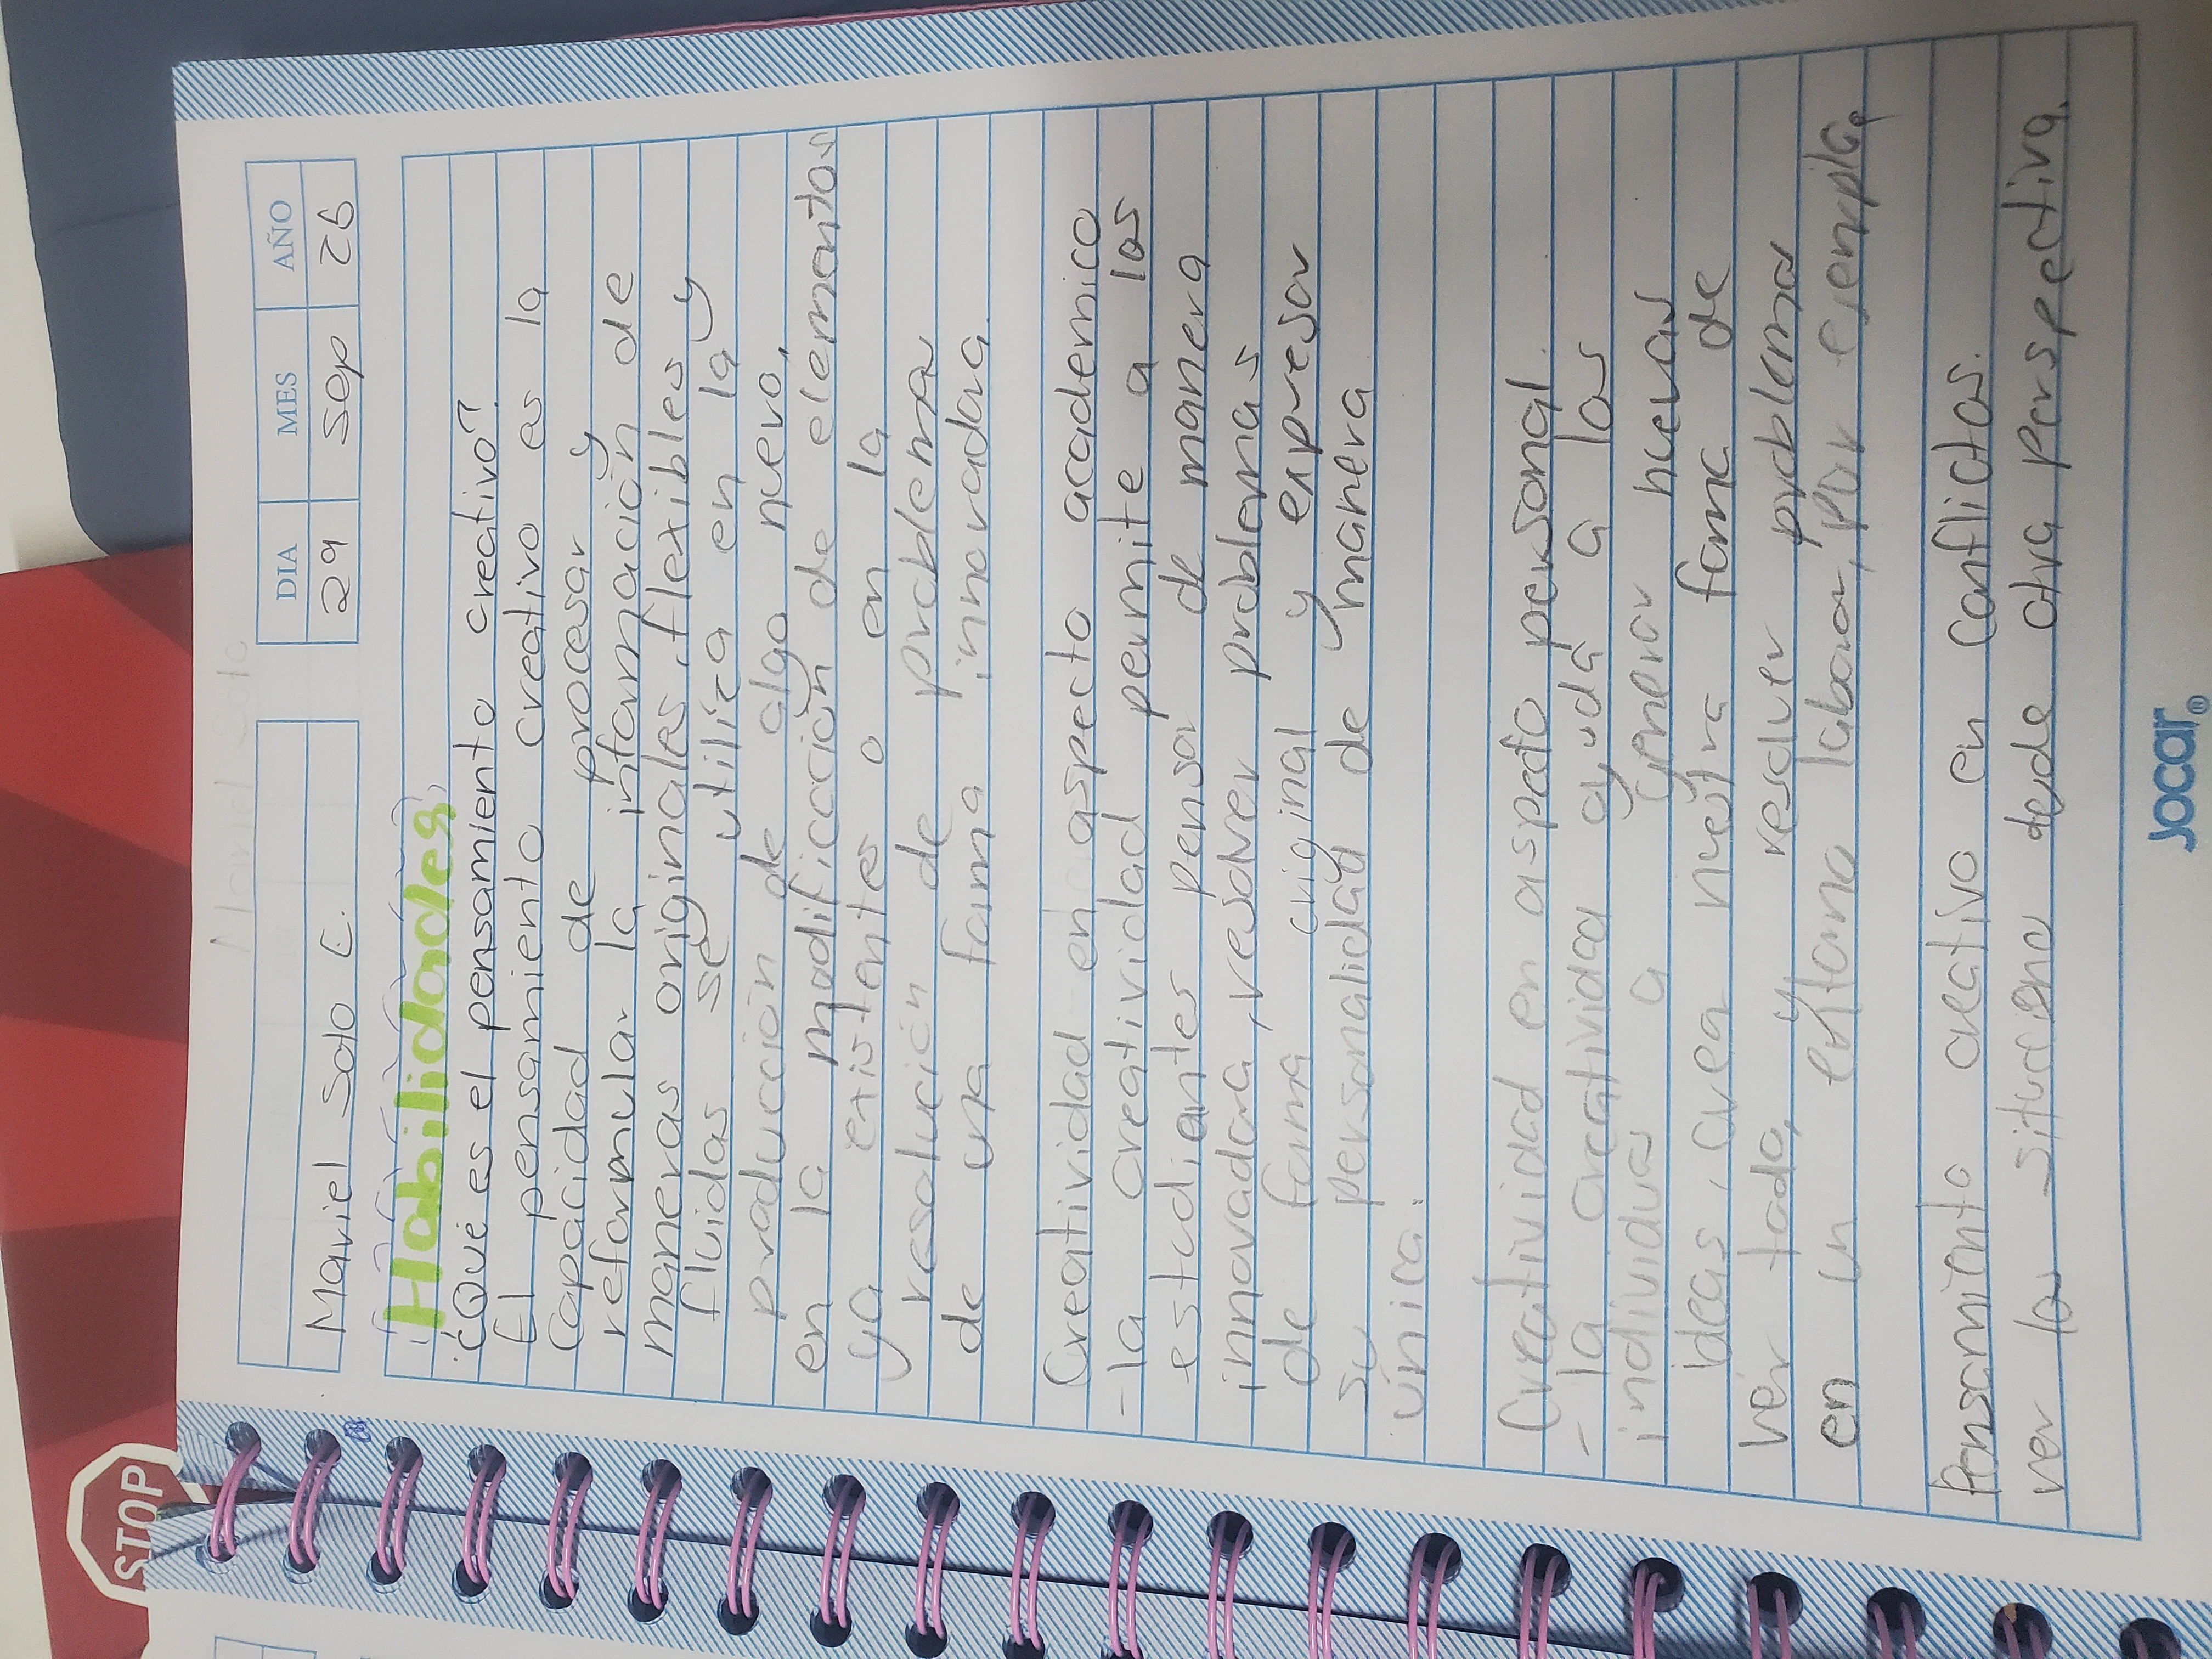 STOP
DIA MES AÑO
Mariel Soto C. 29 Sep 25
Habilidades
¿Qué es el pensamiento creativo?
El pensamiento creativo es la
capacidad de procesar y
reformular la información de
maneras originales, flexibles y
fluidas se utiliza en la
producción de algo nuevo,
en la modificación de elementos
ya existentes o en la
resolución de problema
de una forma innovadora.
Creatividad en aspecto academico
-la creatividad permite a los
estudiantes pensar de manera
innovadora, resolver problemas
de forma original y expresar
su personalidad de manera
única.
Creatividad en aspecto personal.
-la creatividad ayuda a los
individuos a generar nuevas
ideas, crea nuestra forma de
ver todo, y resolver problema
en un entorno labora, por ejemplo,
Pensamiento creativo en conflictos.
ver las situaciono desde otra perspectiva.
Jocar®